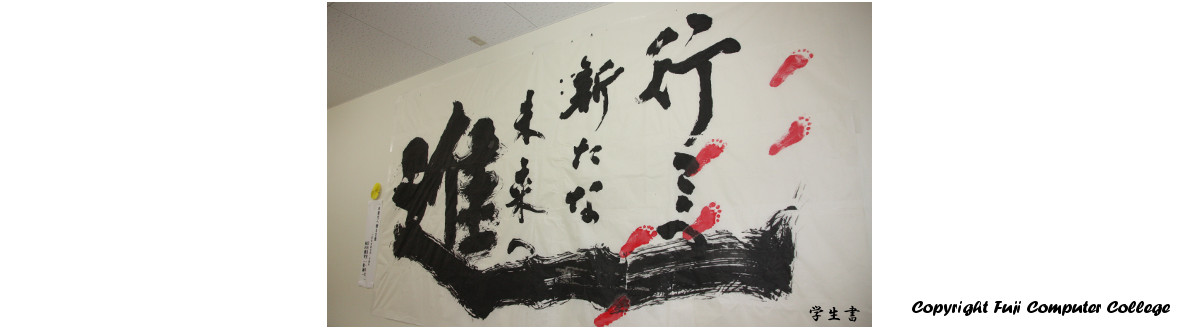 行こう
新たな
未来へ
進
学生書
Copyright Fuji Computer College